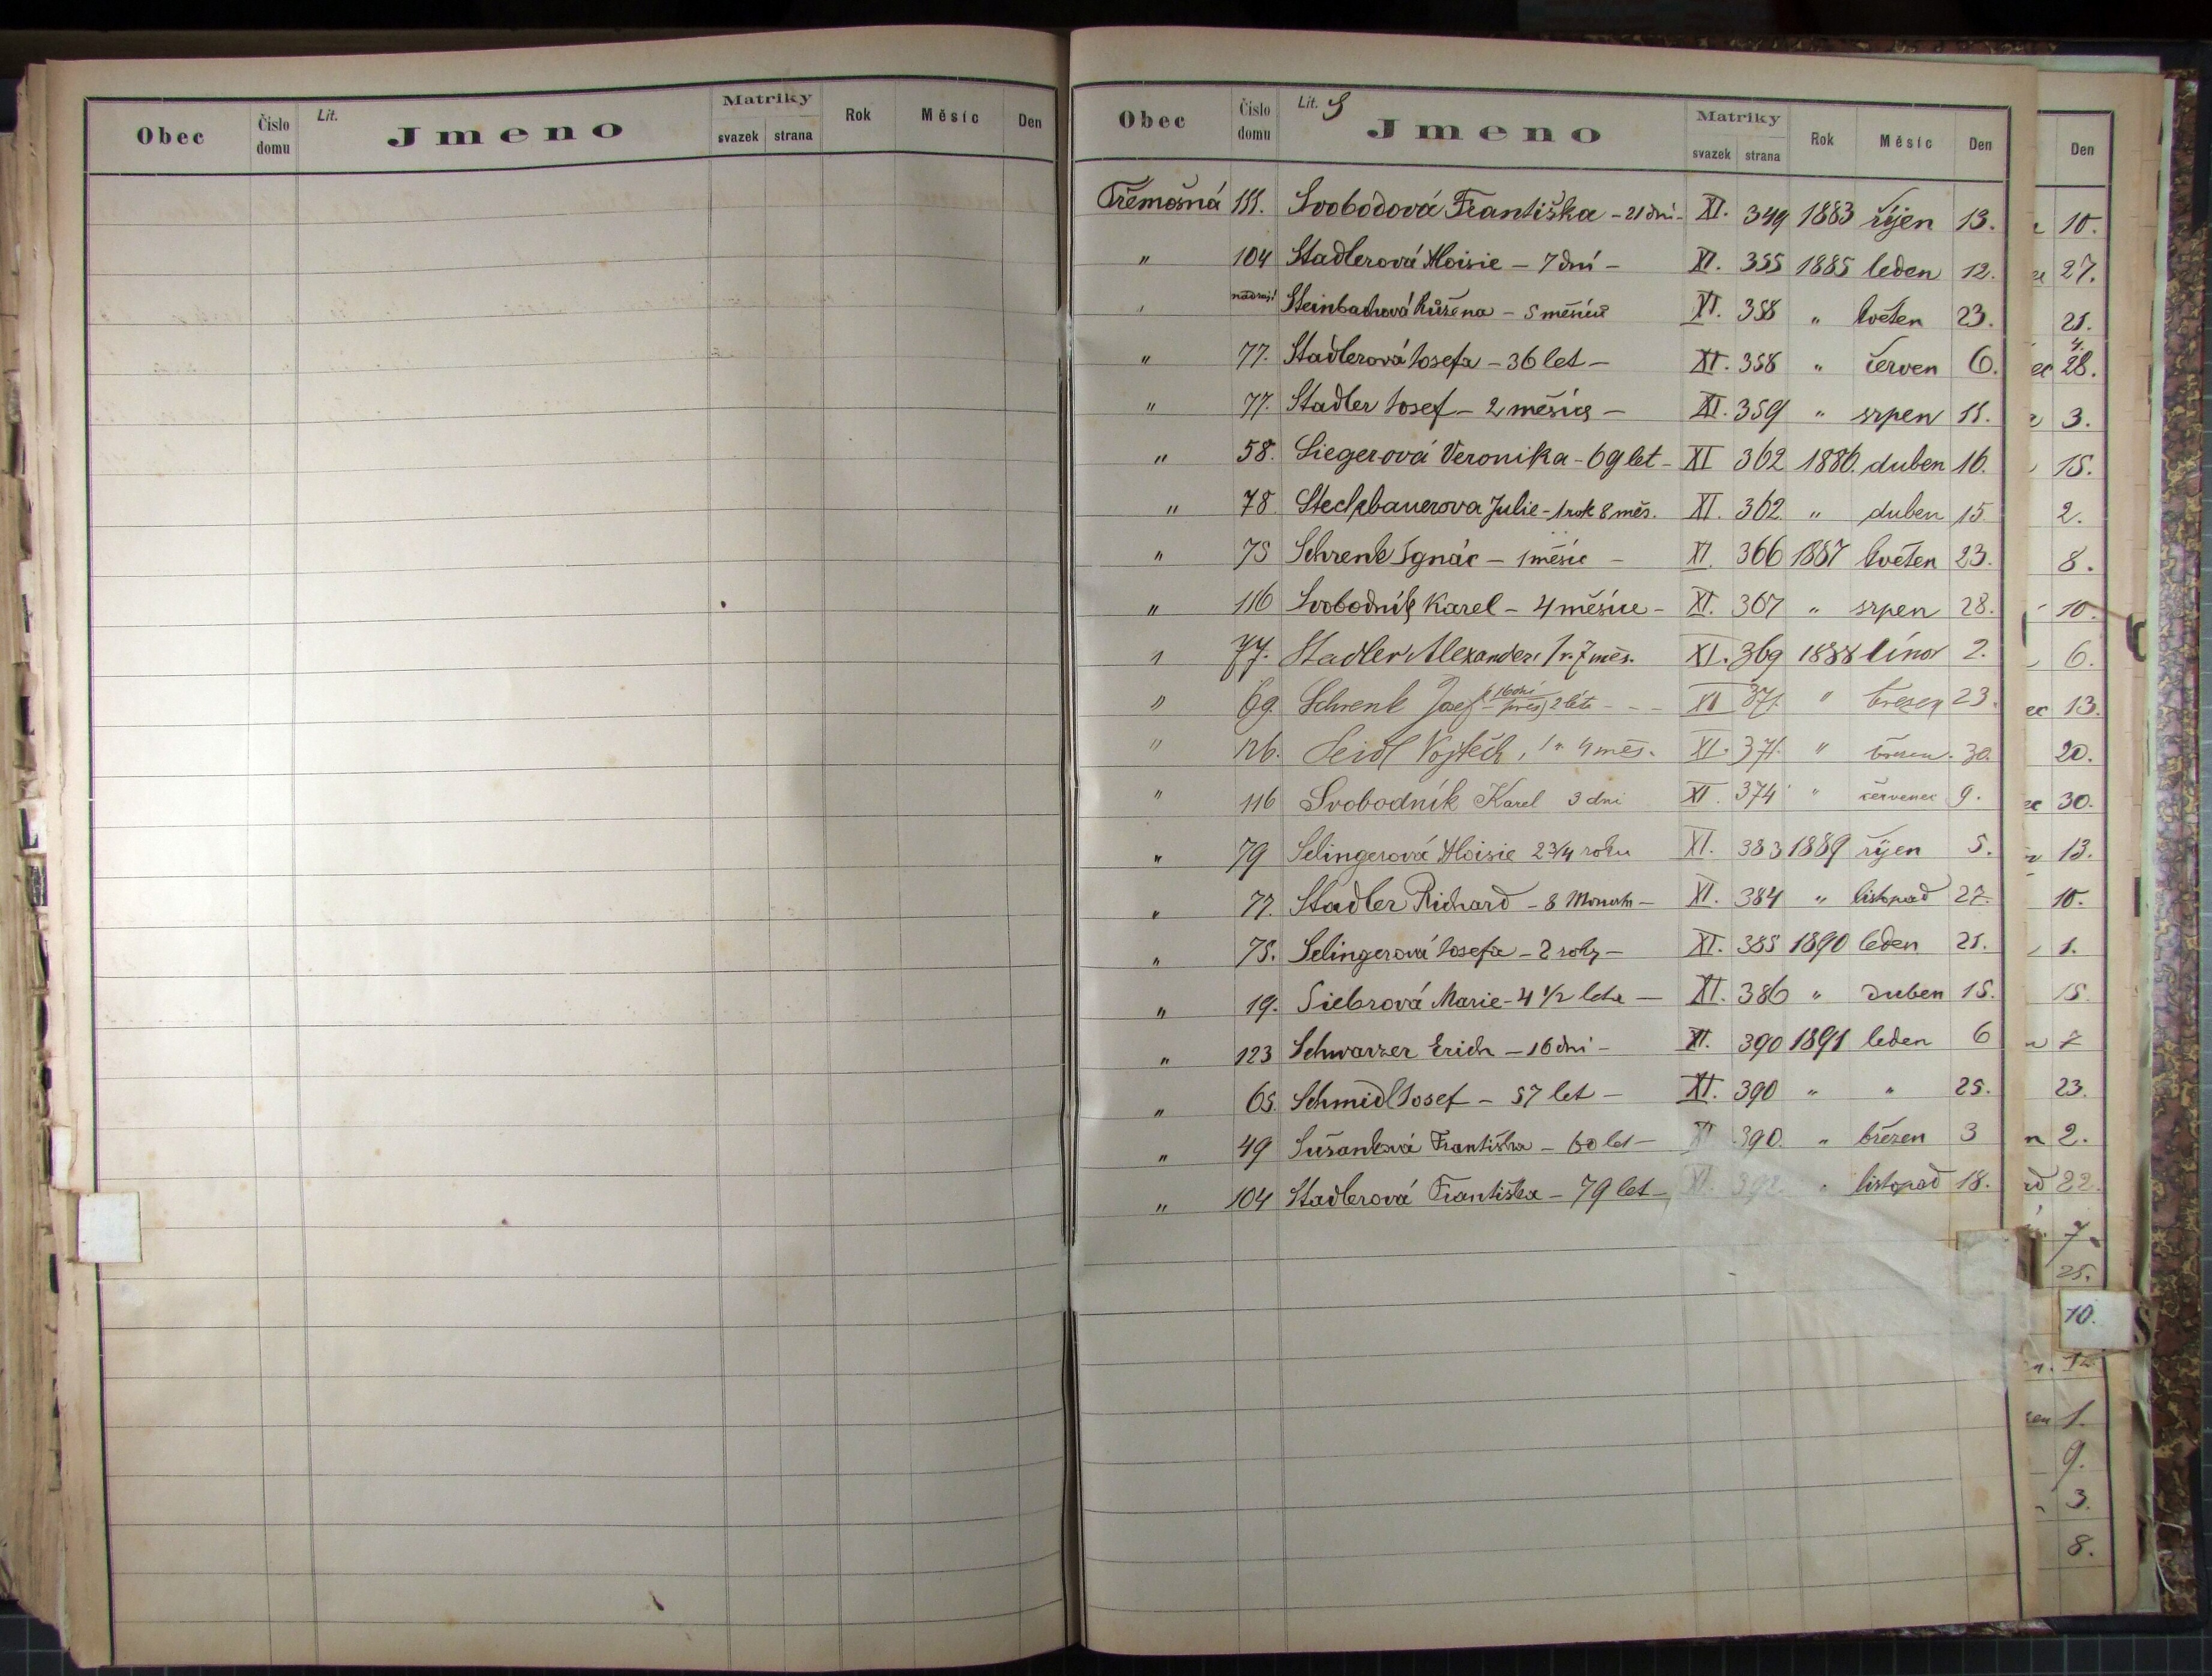 Obec Číslo domu Lit. Jmeno Matriky svazek strana Rok Měsíc Den
Obec Číslo domu Lit. S Jmeno Matriky svazek strana Rok Měsíc Den
Den
Třemošná 111. Svobodová Františka - 21 dní - XI. 349 1883 říjen 13.
" 104 Stadlerová Aloisie - 7 dní - XI. 355 1885 leden 12.
" nádraží Steinbachová Růžena - 5 měsíců XI. 358 " květen 23.
" 77. Stadlerová Josefa - 36 let - XI. 358 " červen 6.
" 77. Stadler Josef - 2 měsíce - XI. 359 " srpen 11.
" 58. Siegerová Veronika - 69 let - XI 362 1886. duben 16.
" 78. Julie - 1 rok 8 měs. XI. 362 " duben 15
" 75 Schrenk Ignác - 1 měsíc - XI. 366 1887 květen 23.
" 116 Svobodník Karel - 4 měsíce - XI. 367 " srpen 28.
" 77. Stadler Alexander 1 r. 7 měs. XI. 369 1888 únor 2.
" 69. Schrenk Josef XI 371. " březen 23.
" 126. Seidl Vojtěch, 1 r. 4 měs. XI. 371. " březen. 30.
" 116 Svobodník Karel 3 dni XI. 374 " červenec 9.
" 79 Selingerová Aloisie 2 3/4 roku XI. 383 1889 říjen 5.
" 77. Stadler Richard - 8 Monate - XI. 384 " listopad 27.
" 75. Selingerová Josefa - 2 roky - XI. 385 1890 leden 21.
" 19. Siebrová Marie - 4 1/2 leta - XI. 386 " duben 15.
" 123 Schwarzer Erich - 16 dní - XI. 390 1891 leden 6
" 65. Schmidl Josef - 57 let - XI. 390 " " 25.
" 49 Sušanková Františka - 60 let - XI 390. " březen 3
" 104 Stadlerová Františka - 79 let - XI. 392. " listopad 18.
10.
27.
21.
4.
28.
3.
15.
2.
8.
10.
6.
13.
20.
30.
13.
10.
1.
15.
7
23.
2.
22.
7.
25.
10.
12
1.
9.
3.
8.